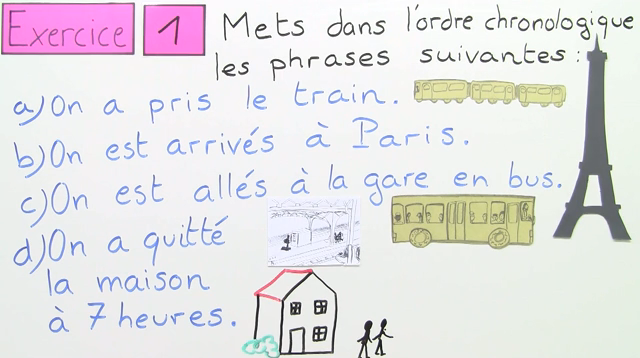 Exercice 1 Mets dans l'ordre chronologique
les phrases suivantes :
a) On a pris le train.
b) On est arrivés à Paris.
c) On est allés à la gare en bus.
d) On a quitté
la maison
à 7 heures.